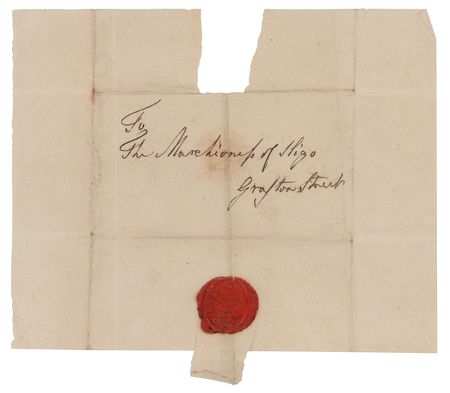 To
The Marchioness of Sligo
Grafton Street